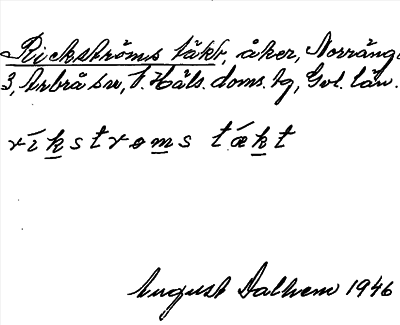 Rickströms täkt, åker, Norränge
3, Arbrå sn, V. Häls. doms. tg, Gvl. län.
ríkstrøms tǽkt
August Dalhem 1946